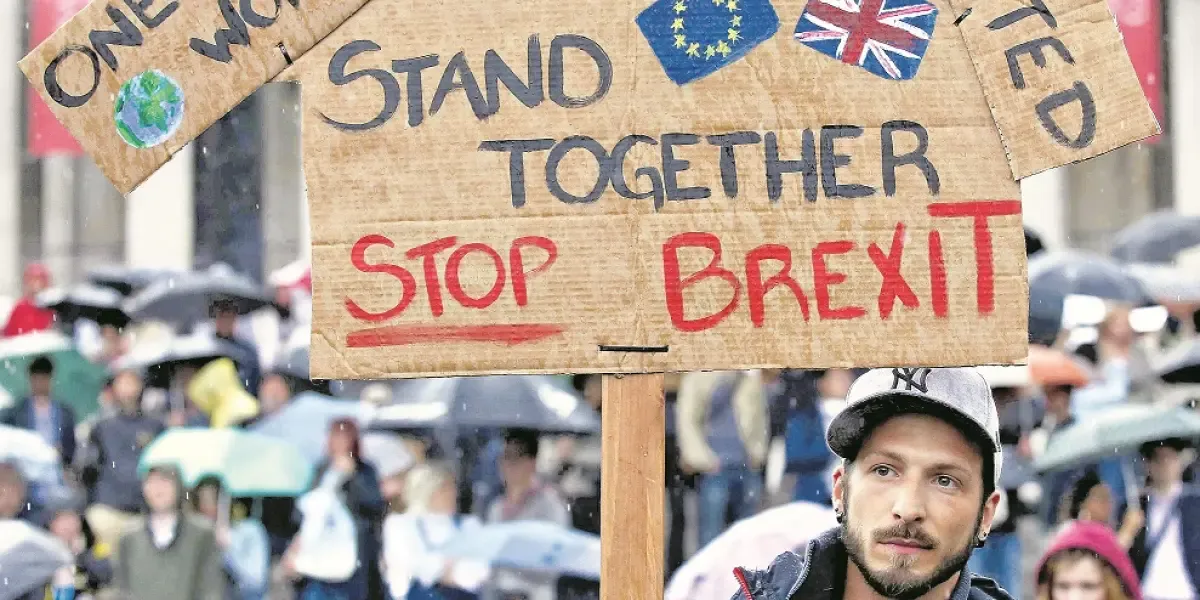 ONE WO
STAND
TOGETHER
STOP BREXIT
TED
NY